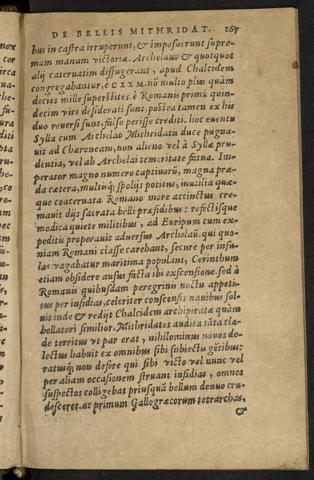 DE BELLIS MITHRIDAT. 267
bus in castra irruperunt, & imposuerunt supre-
mam manum victoriæ. Archelaus & quotquot
alij cateruatim diffugerant, apud Chalcidem
congregabantur, è CIXM. nō multo plus quàm
decies mille superstites. è Romanis primū quin-
decim viri desiderati sunt, postea tamen ex his
duo reuersi sunt, falso perisse crediti. hoc euentu
Sylla cum Archelao Mithridatis duce pugna-
uit ad Charoneam, non alieno vel à Syllæ pru-
dentia, vel ab Archelai temeritate fútua. Im-
perator magno numero captiuorū, magna præ-
da cætera, multisq; spolijs potitus, inutilia quæ-
que coaceruata Romano more accinctus cre-
mauit dijs sacrata belli præsidibus: refectisque
modica quiete militibus, ad Euripum cum ex-
peditis properauit aduersus Archelaū. qui quo-
niam Romani classe carebant, secure per insu-
las vagabatur maritima populans, Cerinthum
etiam obsidere ausus facta ibi exscensione. sed à
Romanis quibusdam peregrinis noctu appeti-
tus per insidias, celeriter conscensis nauibus sol-
uit inde & redijt Chalcidem archipiratæ quàm
bellatori similior. Mithridates audita tāta cla-
de territus vt par erat, nihilominus nouos de-
lectus habuit ex omnibus sibi subiectis gētibus:
ratusq; non defore qui sibi victo vel nunc vel
per aliam occasionem struant insidias, omnes
suspectos colligebat priusquā bellum denuo cru-
desceret. ac primum Gallogræcorum tetrarchas,
&